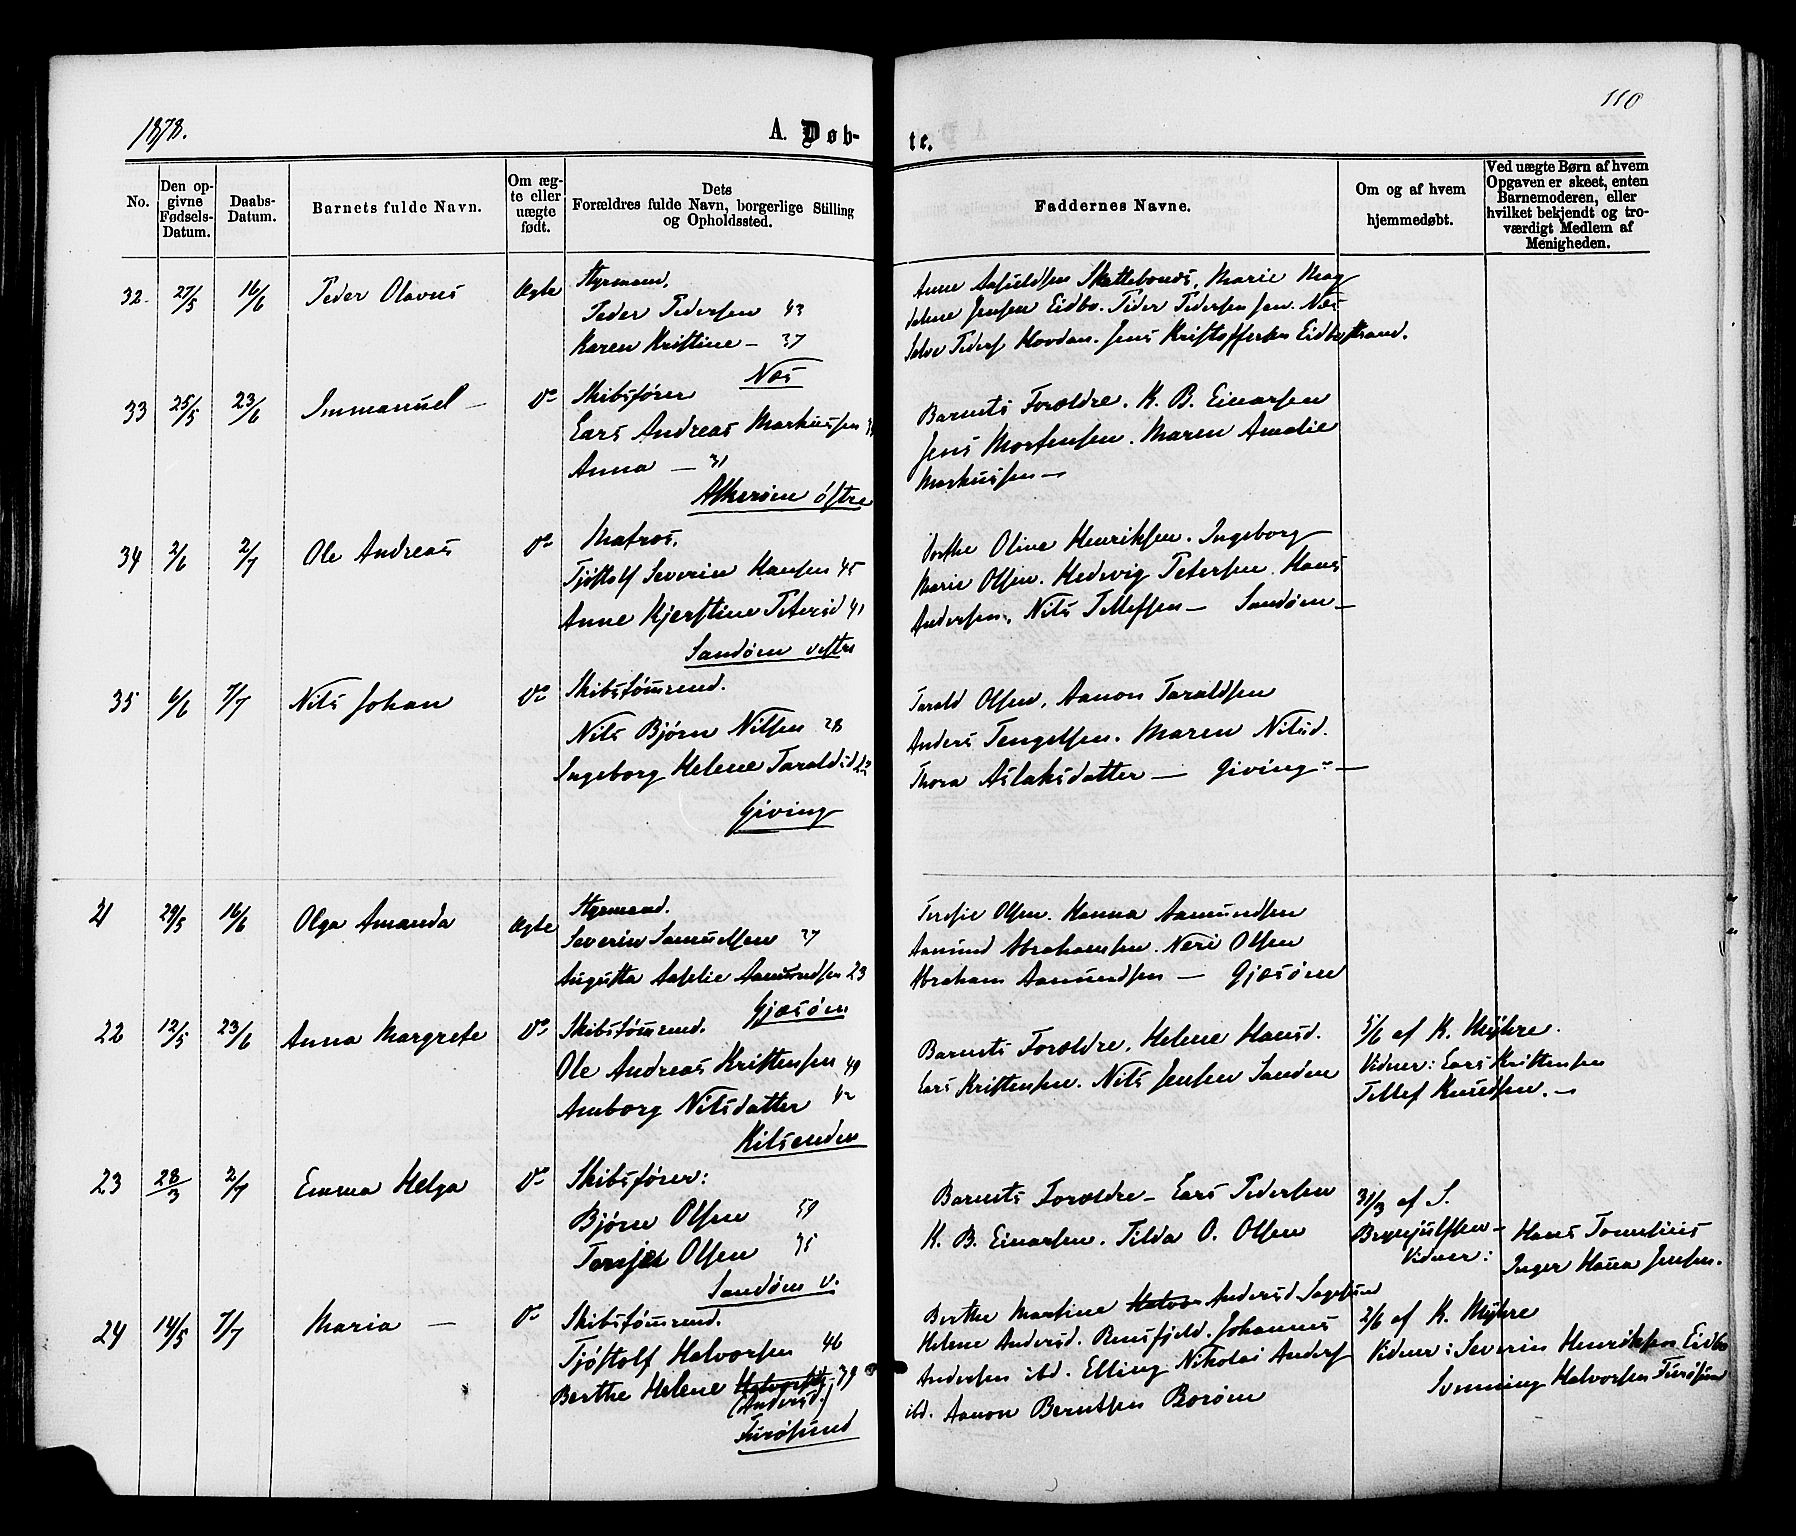 110
1878.
A. Døb-
te.
No.
Den op-
givne
Fødsels-
Datum.
Daabs-
Datum.
Barnets fulde Navn.
Om æg-
te eller
uægte
født.
Dets
Forældres fulde Navn, borgerlige Stilling
og Opholdssted.
Faddernes Navne.
Om og af hvem
hjemmedøbt.
Ved uægte Børn af hvem
Opgaven er skeet, enten
Barnemoderen, eller
hvilket bekjendt og tro-
værdigt Medlem af
Menigheden.
32 27/5 16/6 Peder Olavus Ægte Styrmand,
Peder Pedersen 43
Karen Kristine — 37
Næs
Anne Marie Mag
delene Jensen Eidbo. Peder Pedersen Næs
Peders Hovdan. Jens Kristoffersen Eidbostrand.
33 25/5 23/6 Immanuel — Do Skibsfører
Lars Andreas Markussen
Anna — 31
Askerøen østre
Barnets Forældre. K. B. Einarsen
Jens Mortensen. Maren Amalie
Markussen —
34 2/6 2/7 Ole Andreas Do Matros,
Tjøstolf Severin Hansen 45
Anne Kjerstine Petersd 41
Sandøen vestre
Berthe Oline Henriksen. Ingeborg
Marie Olsen. Hedevig Petersen. Hans
Andersen, Nils Tellefsen — Sandøen —
35 6/6 7/7 Nils Johan Do Skibstømmend.
Nils Bjørn Nilsen 28
Ingeborg Helene Taraldsd 22
Giving
Tarald Olsen, Aanon Taraldsen
Anders Tengelsen. Maren Nilsd.
Thora Aslaksdatter — Giving —
21 29/5 16/6 Olga Amanda Ægte Styrmand.
Severin Samuelsen 27
Augusta Aamundsen 23
Gjæsøen
Teresie Olsen. Hanna Aamundsen
Aamund Abrahamsen. Neri Olsen
Abraham Aamundsen — Gjæsøen
22 12/5 23/6 Anna Margrete Do Skibstømmend.
Ole Andreas Kristensen 49
Amborg Nilsdatter 42
Kilsenden
Barnets Forældre, Helene Hansd.
Lars Kristensen. Nils Jensen Sanden
5/6 af K. Myhre.
Vidner: Lars Kristensen
Tellef Knudsen. —
23 28/3 2/7 Emma Helga Do Skibsfører:
Bjørn Olsen 59
Olsen 35
Sandøen v.
Barnets Forældre — Lars Pedersen
K. B. Einarsen. Tilda O. Olsen
31/3 af S.
Vidner:
Hans
Inger Hanna Jensen.
24 14/5 7/7 Maria — Do Skibstømmend.
Tjøstolf Halvorsen 46
Berthe Helene 39
(Andersd.)
Furøsund
Berthe Martine Andersd Sagesund
Helene Andersd. Rensfjeld. Johannes
Andersen ibd. Elling Nikolai Anders
ibd. Aanon Berntsen Borøen
2/6 af K. Myhre
Vidner: Severin Henriksen Eidbo
Svenning Halvorsen Furøsund